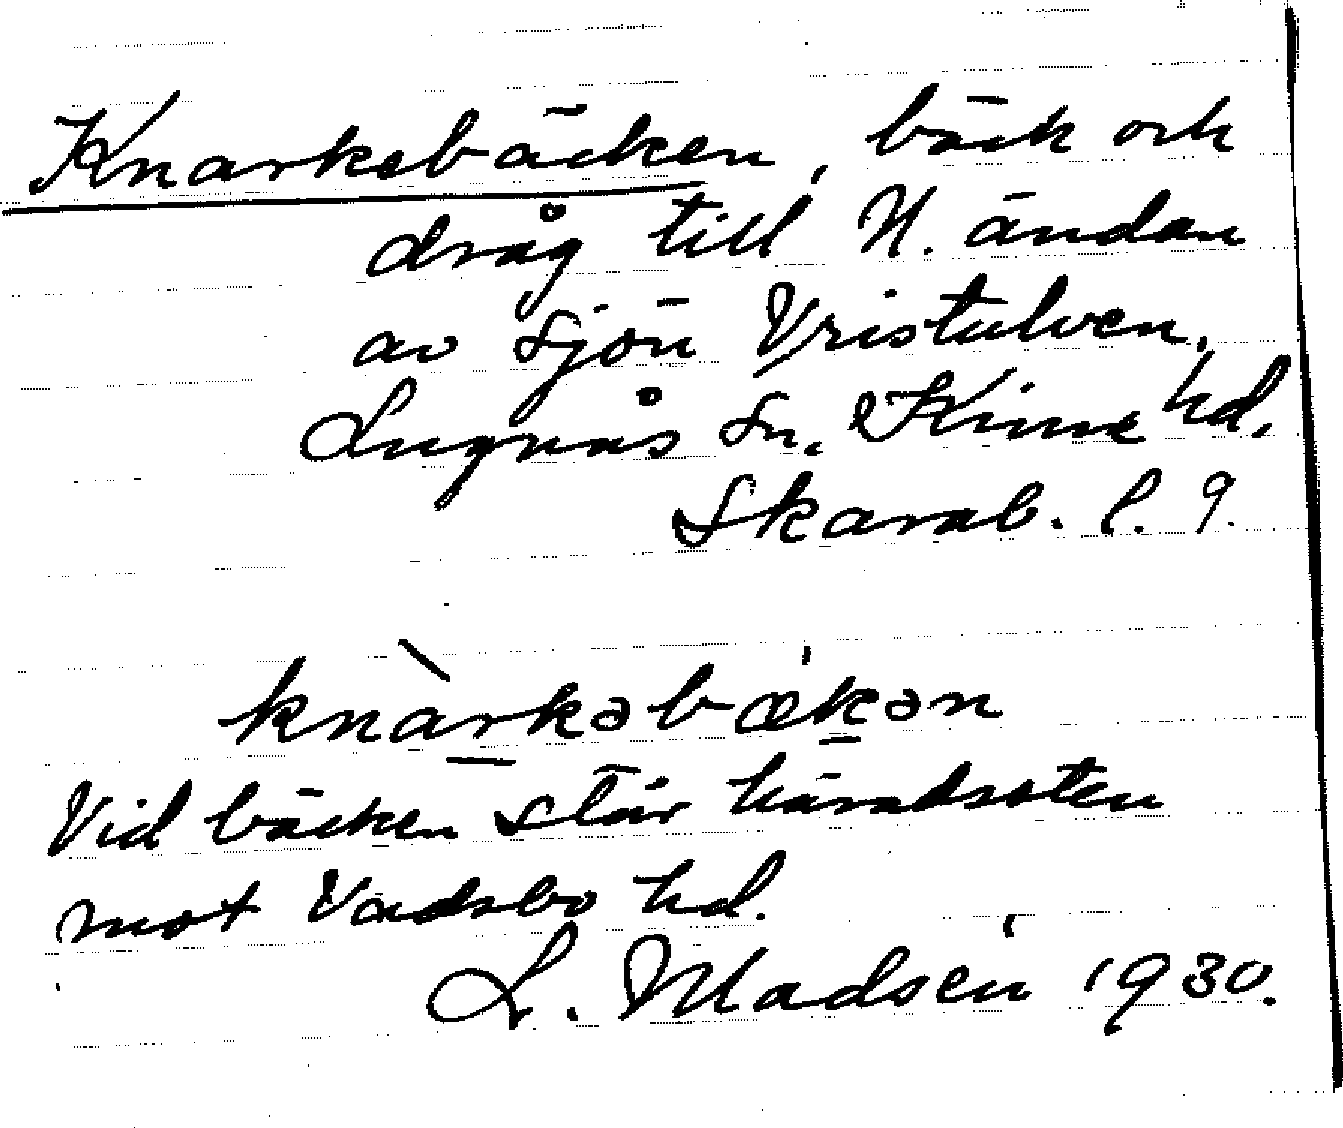 Knarkebäcken, bäck och
dråg till N. ändan
av sjön Vristulven,
Lugnås sn. Kinne hd,
Skarab. l. 9.
knàrkəbækən
Vid bäcken står häradssten
mot Vadsbo hd.
L. Madsén 1930.